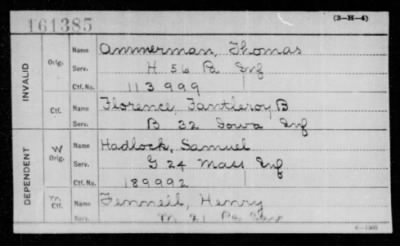 161385 (3-H-4)
INVALID
Orig. Name Ammerman, Thomas
Serv. H 56 Pa Inf
Ctf. No. 113999
Ctf. Name Florence, Fantleroy B
Serv. B 32 Iowa Inf
DEPENDENT
W Orig. Name Hadlock, Samuel
Serv. G 24 Mass Inf
Ctf. No. 189992
Ctf. Name Fennell, Henry
Serv. M 21 Pa